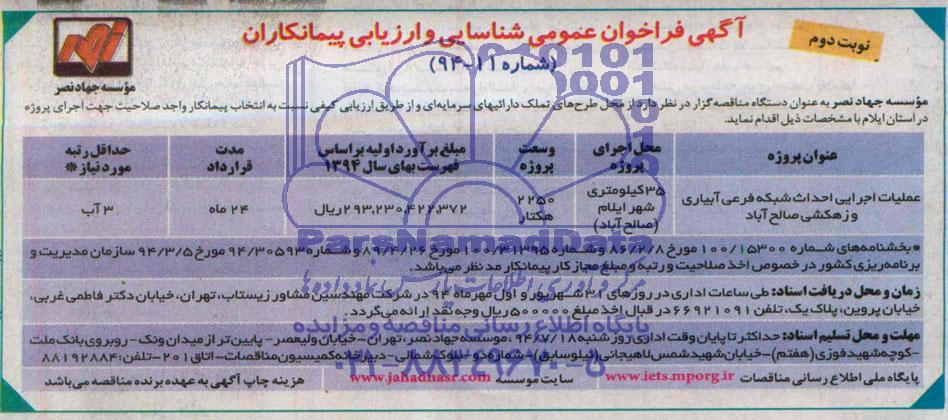 آگهی فراخوان عمومی شناسایی و ارزیابی پیمانکاران
(شماره ۱۱-۹۴)
نوبت دوم
نصر
مؤسسه جهاد نصر
مؤسسه جهاد نصر به عنوان دستگاه مناقصه‌گزار در نظر دارد از محل طرح‌های تملک دارائیهای سرمایه‌ای و از طریق ارزیابی کیفی نسبت به انتخاب پیمانکار واجد صلاحیت جهت اجرای پروژه
در استان ایلام با مشخصات ذیل اقدام نماید.
عنوان پروژه | محل اجرای پروژه | وسعت پروژه | مبلغ برآورد اولیه براساس فهرست بهای سال ۱۳۹۴ | مدت قرارداد | حداقل رتبه مورد نیاز *
عملیات اجرایی احداث شبکه فرعی آبیاری و زهکشی صالح آباد | ۳۵ کیلومتری شهر ایلام (صالح آباد) | ۲۲۵۰ هکتار | ۲۹۳,۲۳۰,۴۲۲,۳۷۲ ریال | ۲۴ ماه | ۳ آب
* بخشنامه‌های شماره ۱۰۰/۱۵۳۰۰ مورخ ۸۶/۲/۸ و شماره ۱۰۰/۳۱۳۹۵ مورخ ۸۹/۴/۲۶ و شماره ۹۴/۳۰۵۹۳ مورخ ۹۴/۳/۵ سازمان مدیریت و
برنامه‌ریزی کشور در خصوص اخذ صلاحیت و رتبه و مبلغ مجاز کار پیمانکار مد نظر می‌باشد.
زمان و محل دریافت اسناد: طی ساعات اداری در روزهای ۳۱ شهریور و اول مهرماه ۹۴ در شرکت مهندسین مشاور زیستاب، تهران، خیابان دکتر فاطمی غربی،
خیابان پروین، پلاک یک، تلفن ۶۶۹۲۱۰۹۱ در قبال اخذ مبلغ ۵۰۰۰۰۰ ریال وجه نقد ارائه می‌گردد.
مهلت و محل تسلیم اسناد: حداکثر تا پایان وقت اداری روز شنبه ۹۴/۷/۱۸، موسسه جهاد نصر، تهران- خیابان ولیعصر- پایین‌تر از میدان ونک- روبروی بانک ملت
-کوچه شهید فوزی (هفتم)- خیابان شهید شمس لاهیجانی (نیلو سابق)- شماره دو- بلوک شمالی- دبیرخانه کمیسیون مناقصات- اتاق ۲۰۱- تلفن: ۸۸۱۹۲۸۸۴
پایگاه ملی اطلاع رسانی مناقصات www.iets.mporg.ir سایت موسسه www.jahadnasr.com هزینه چاپ آگهی به عهده برنده مناقصه می‌باشد
ParsNamadData
مرکز فرآوری اطلاعات پارس نماد داده‌ها
پایگاه اطلاع رسانی مناقصه و مزایده
۰۲۱-۸۸۳۴۹۶۷۰-۵